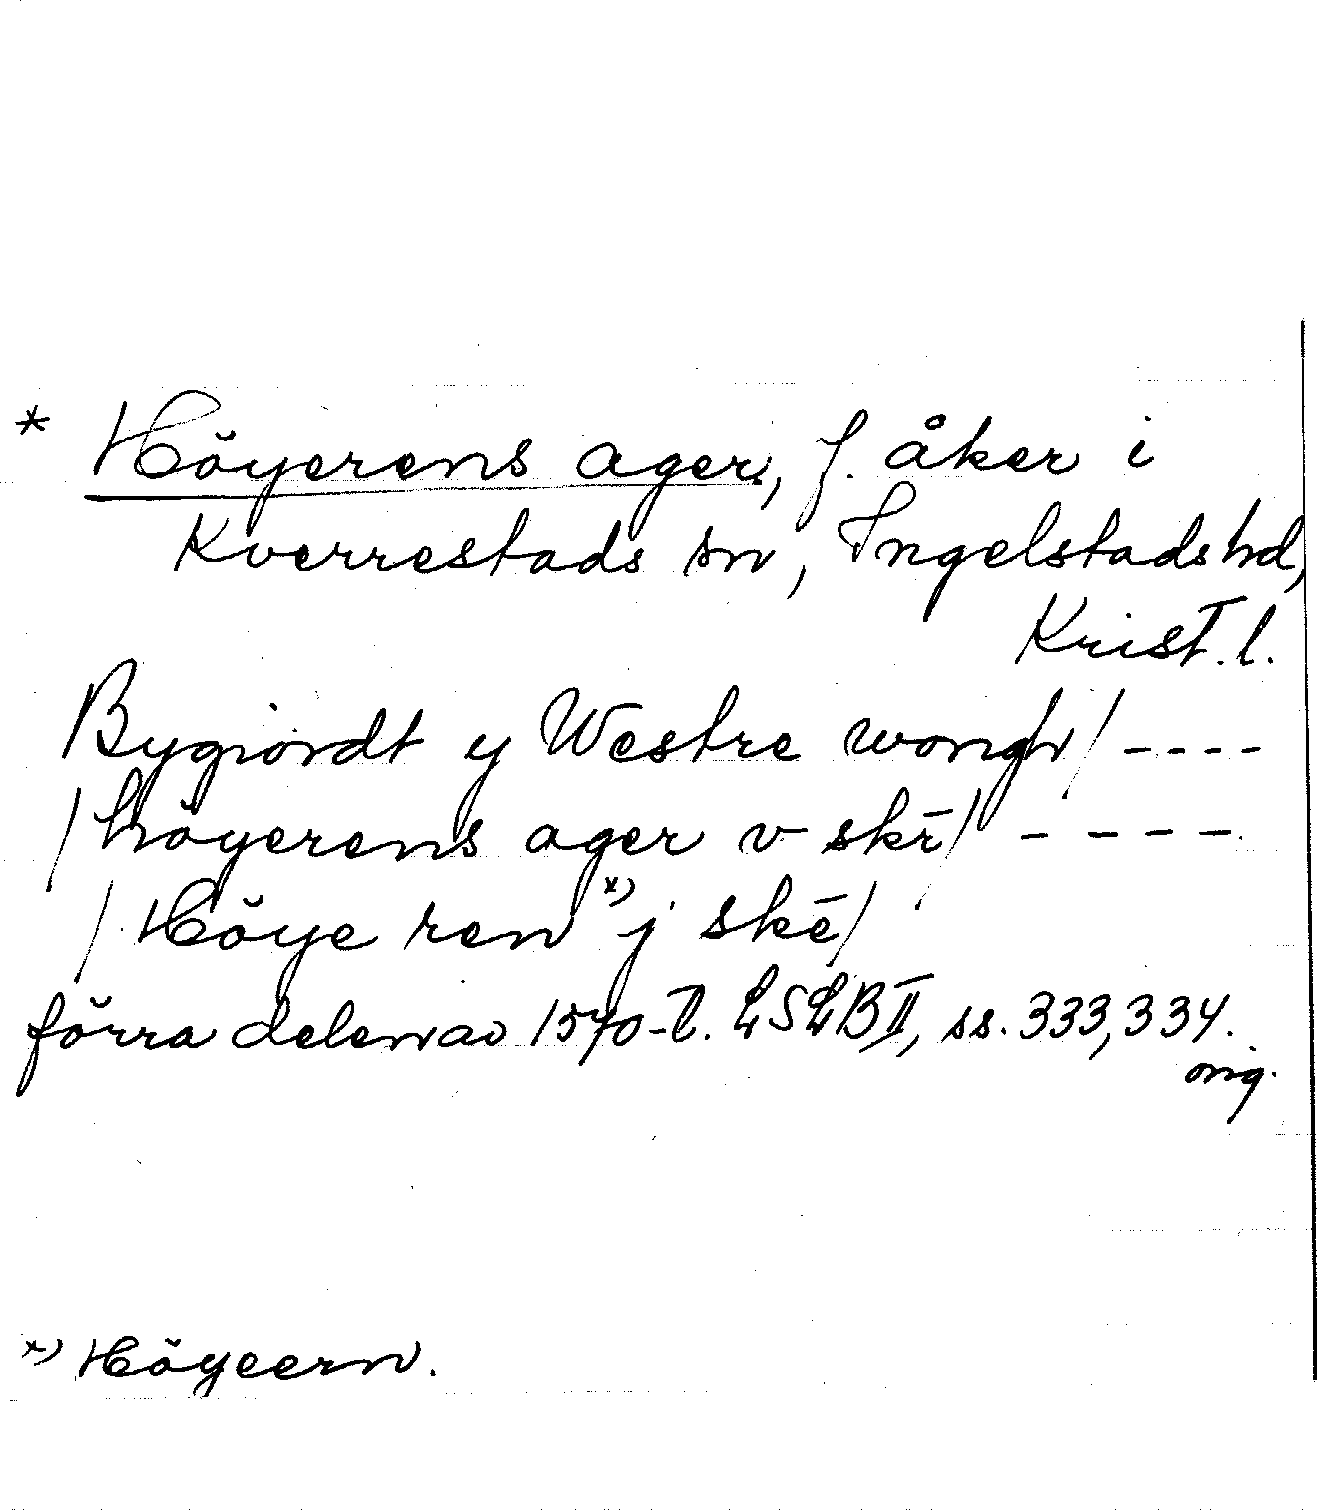 * Höyerens ager, f. åker i
Kverrestads sn, Ingelstads hd,
Krist. l.
Bygiordt y Westre wongh/ ----
/höyerens ager v skē/ ----
/Höye ren *) j skē/
förra delen av 1570-t. LSLB II, ss. 333, 334.
orig.
*) Höyeern.